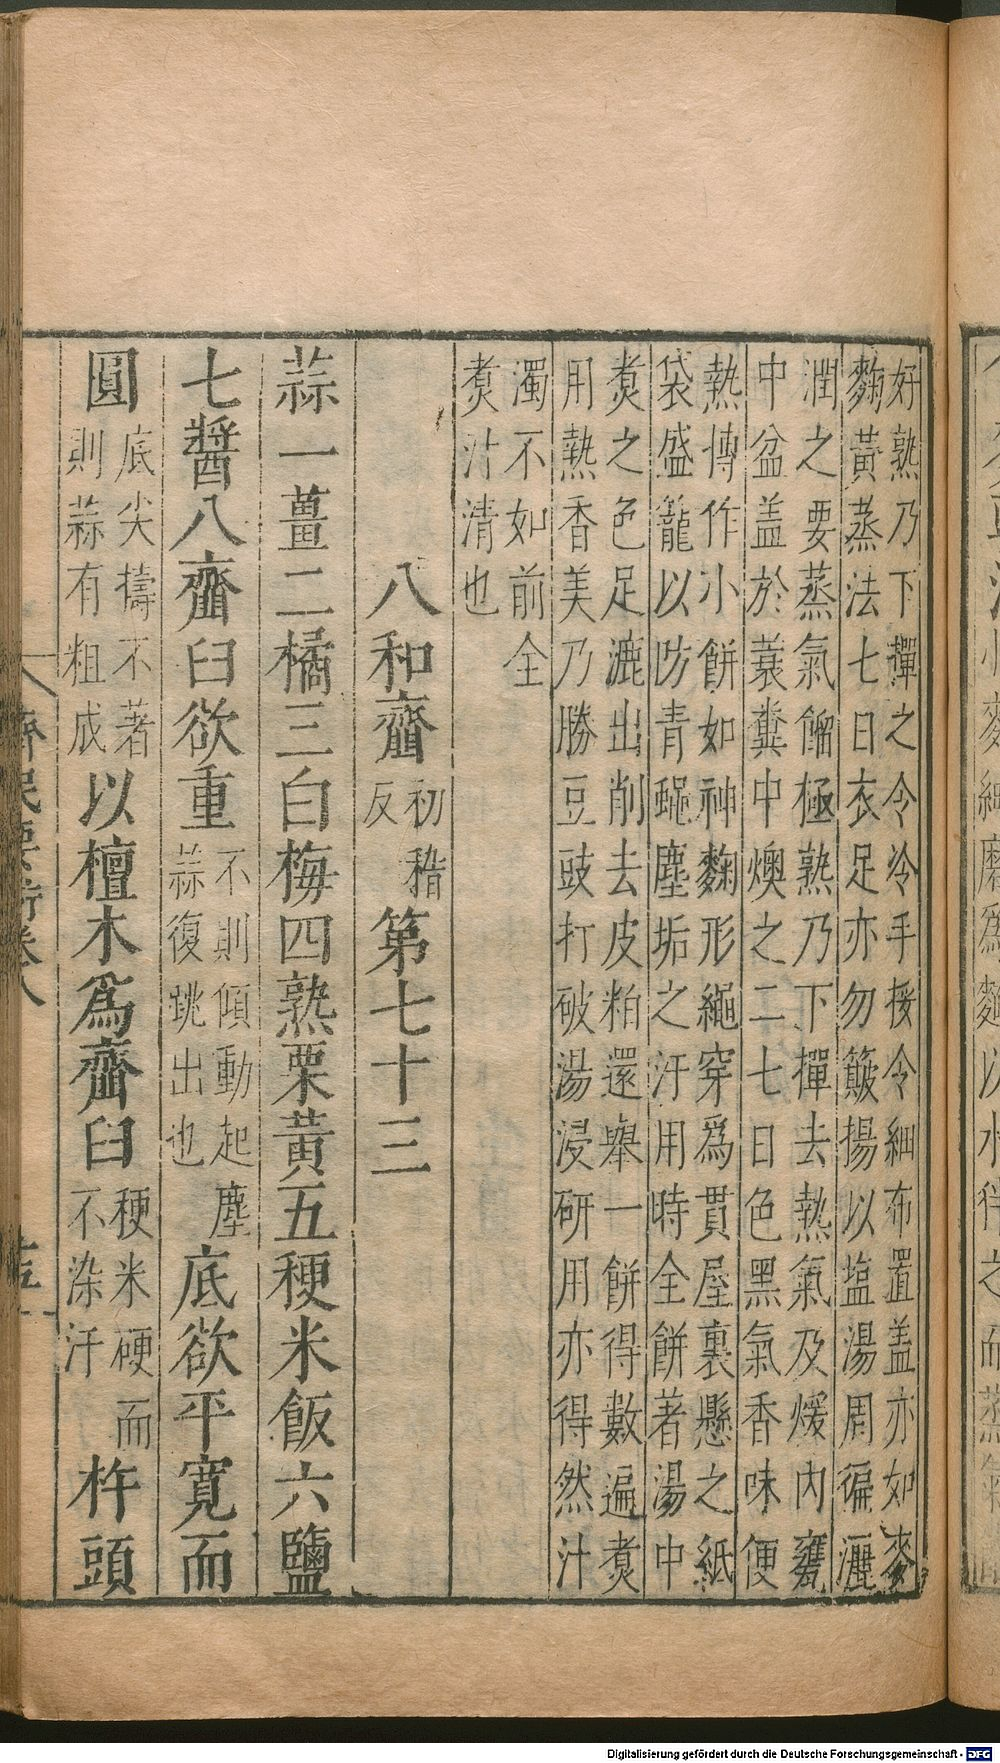 好熟乃下撣之令冷手挼令細布置盖亦如麥
麴黄蒸法七日衣足亦勿簸揚以塩湯周徧灑
潤之要蒸氣餾極熟乃下撣去熱氣及煖内甕
中盆盖於蘘糞中燠之二七日色黑氣香味便
熟摶作小餅如神麴形繩穿爲貫屋裏懸之紙
袋盛籠以防青蠅塵垢之汙用時全餅著湯中
煑之色足漉出削去皮粕還舉一餅得數遍煑
用熱香美乃勝豆豉打破湯浸研用亦得然汁
濁不如前全
煑汁清也
八和齏初稽反第七十三
蒜一薑二橘三白梅四熟栗黄五稉米飯六鹽
七醬八齏臼欲重不則傾動起塵蒜復跳出也底欲平寬而
圓底尖擣不著則蒜有粗成以檀木爲齏臼稉米硬而不染汗杵頭
齊民要術卷八
Digitalisierung gefördert durch die Deutsche Forschungsgemeinschaft - DFG